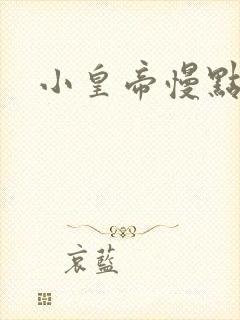 小皇帝慢點
哀藍